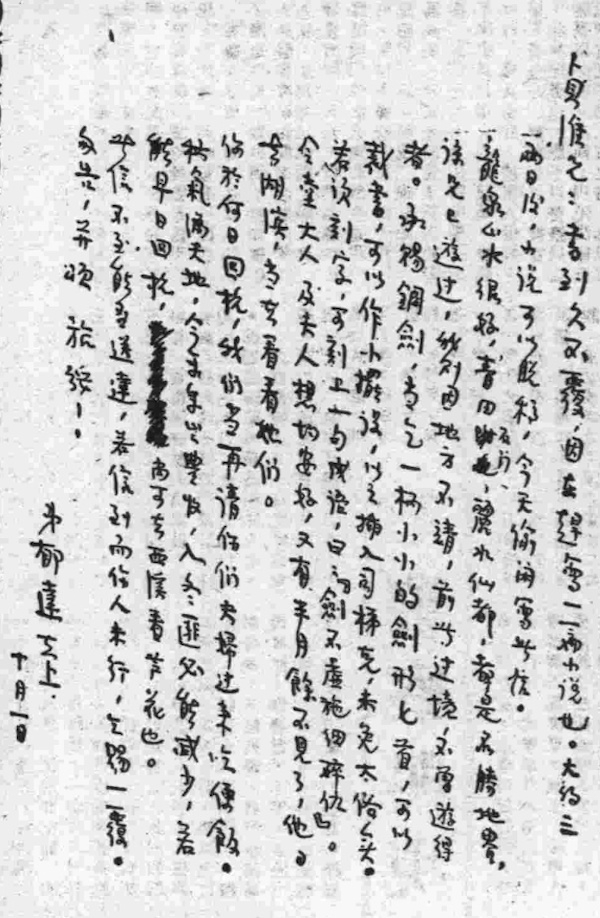 貞惟兄：書到久不覆，因在趕寫一篇小說也。大約三
兩日後，小說可以脫稿，今天偷閑寫此信。
龍泉山水很好，青田石門，麗水仙都，都是名勝地費，
諒兄已遊過，我則因地方不靖，前此過境，不曾遊得
者。承賜銅劍，當乞一柄小小的劍形匕首，可以
裁書，可以作小擺設，以之插入司梯克，未免太俗矣。
若說刻字，可刻上一句成語，曰「劍不虛施細碎仇」。
令堂大人及夫人想均安好，又有半月餘不見了，他日
去湖濱，當去看看他們。
你於何日回杭，我們當再請你們夫婦過來吃便飯。
秋氣滿天地，今年年豐收，入冬匪必能減少，若
能早日回杭，尚可去西溪看芦花也。
此信不知能否送達，若信到而你人未行，乞賜一覆。
匆告，并頌 旅綏！
弟郁達夫上
十月一日